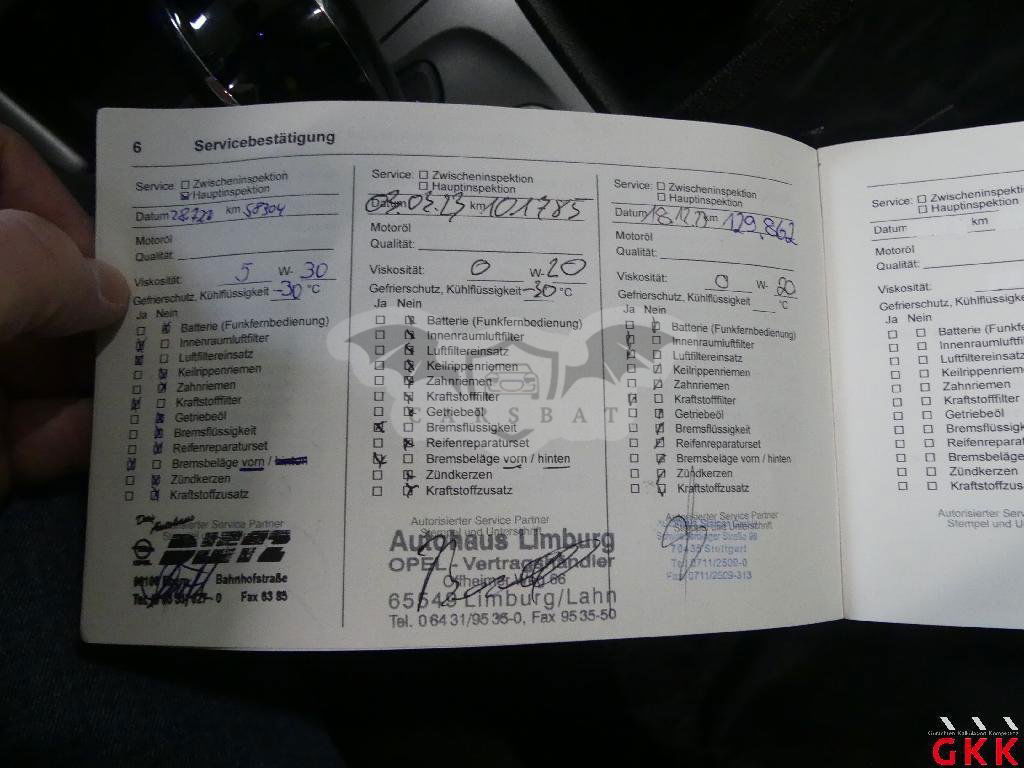 6 Servicebestätigung
Service: Zwischeninspektion
Hauptinspektion
Datum km 58304
Motoröl
Qualität:
Viskosität: 5 W- 30
Gefrierschutz, Kühlflüssigkeit -30 °C
Ja Nein
Batterie (Funkfernbedienung)
Innenraumluftfilter
Luftfiltereinsatz
Keilrippenriemen
Zahnriemen
Kraftstofffilter
Getriebeöl
Bremsflüssigkeit
Reifenreparaturset
Bremsbeläge vorn / hinten
Zündkerzen
Kraftstoffzusatz
Das Autohaus
Autorisierter Service Partner
Bahnhofstraße
Fax 63 85
Service: Zwischeninspektion
Hauptinspektion
Datum km 101785
Motoröl
Qualität:
Viskosität: 0 W- 20
Gefrierschutz, Kühlflüssigkeit -30 °C
Ja Nein
Batterie (Funkfernbedienung)
Innenraumluftfilter
Luftfiltereinsatz
Keilrippenriemen
Zahnriemen
Kraftstofffilter
Getriebeöl
Bremsflüssigkeit
Reifenreparaturset
Bremsbeläge vorn / hinten
Zündkerzen
Kraftstoffzusatz
Autorisierter Service Partner
Stempel und Unterschrift
Autohaus Limburg
OPEL - Vertragshändler
Offheimer Weg 66
65549 Limburg/Lahn
Tel. 0 64 31/95 35-0, Fax 95 35-50
Service: Zwischeninspektion
Hauptinspektion
Datum km 129.862
Motoröl
Qualität:
Viskosität: 0 W- 20
Gefrierschutz, Kühlflüssigkeit °C
Ja Nein
Batterie (Funkfernbedienung)
Innenraumluftfilter
Luftfiltereinsatz
Keilrippenriemen
Zahnriemen
Kraftstofffilter
Getriebeöl
Bremsflüssigkeit
Reifenreparaturset
Bremsbeläge vorn / hinten
Zündkerzen
Kraftstoffzusatz
Autorisierter Service Partner
Stempel und Unterschrift
70435 Stuttgart
Tel. 0711/2509-0
Fax 0711/2509-313
Service: Zwischeninspektion
Hauptinspektion
Datum km
Motoröl
Qualität:
Viskosität:
Gefrierschutz, Kühlflüssigkeit
Ja Nein
Batterie (Funkfernb
Innenraumluftfilter
Luftfiltereinsatz
Keilrippenriemen
Zahnriemen
Kraftstofffilter
Getriebeöl
Bremsflüssigkeit
Reifenreparatur
Bremsbeläge vo
Zündkerzen
Kraftstoffzusatz
Autorisierter Servic
Stempel und Unt
CARSBAT
Gutachten Kalkulation Kompetenz
GKK